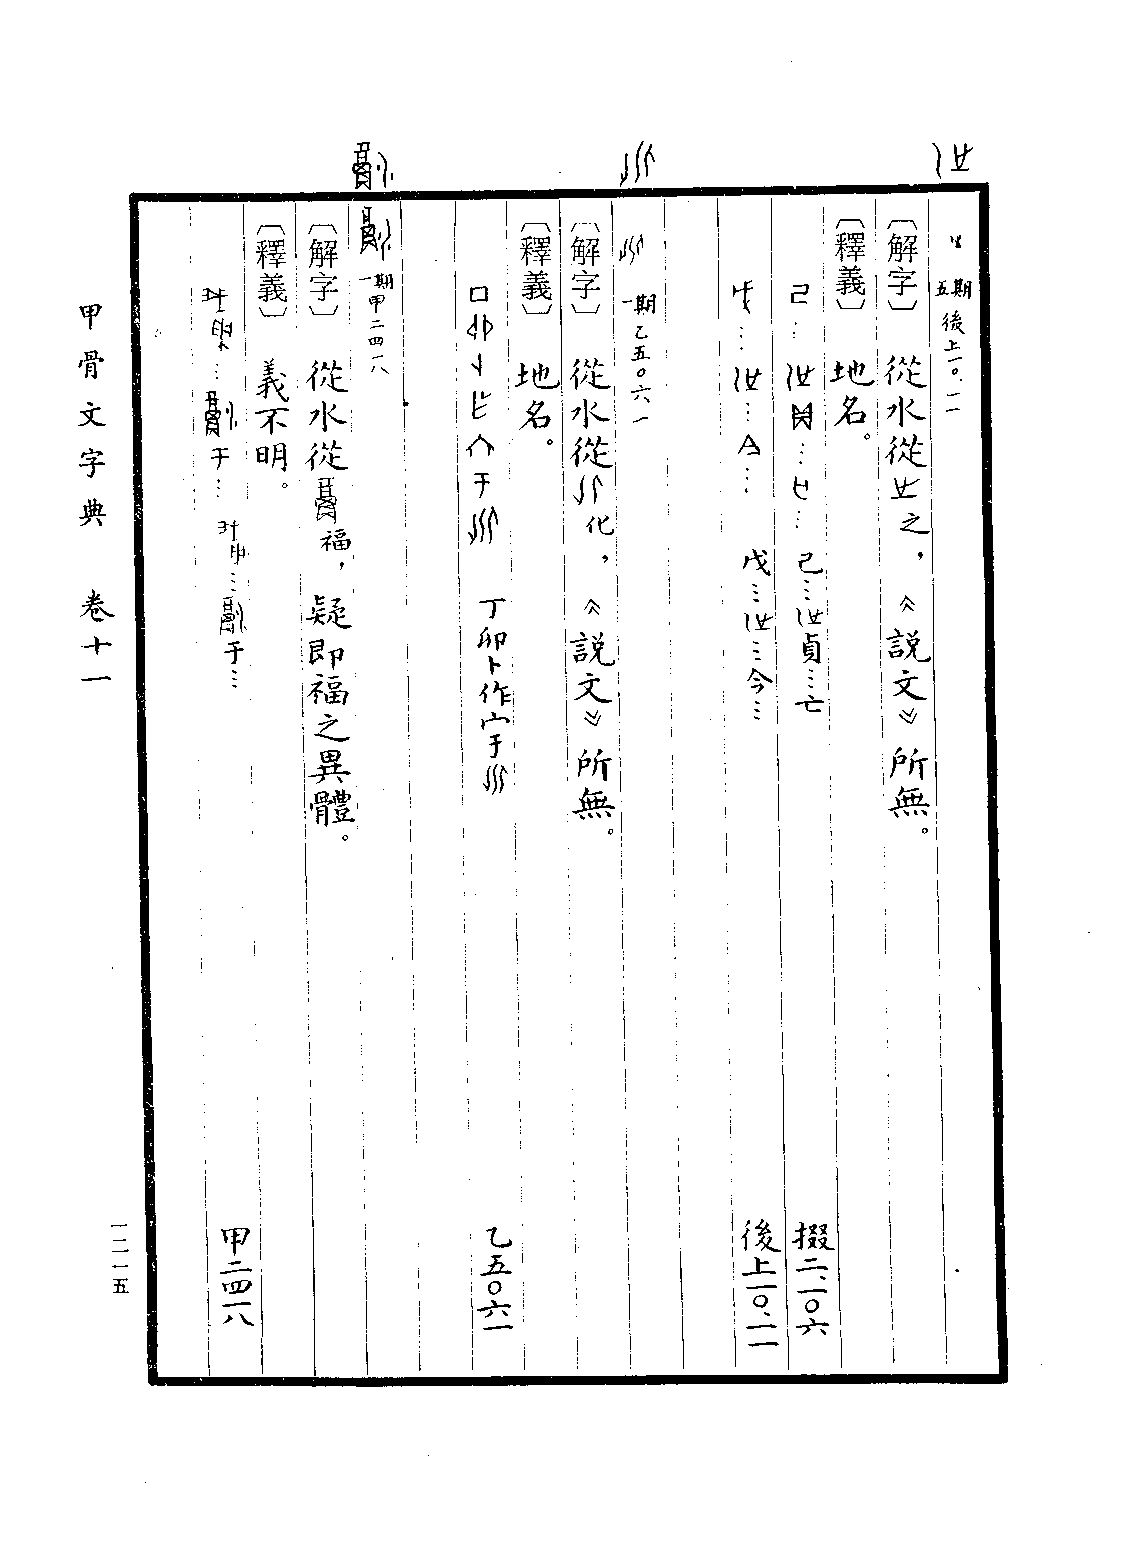 五期後上一〇.一一
〔解字〕從水從之，《説文》所無。
〔釋義〕地名。
己…貞…亡 掇二.一〇六
戊…今… 後上一〇.一一
一期乙五〇六一
〔解字〕從水從化，《説文》所無。
〔釋義〕地名。
丁卯卜作宀于 乙五〇六一
一期甲二四一八
〔解字〕從水從福，疑即福之異體。
〔釋義〕義不明。
于… 于… 甲二四一八
甲骨文字典 卷十一
一二一五